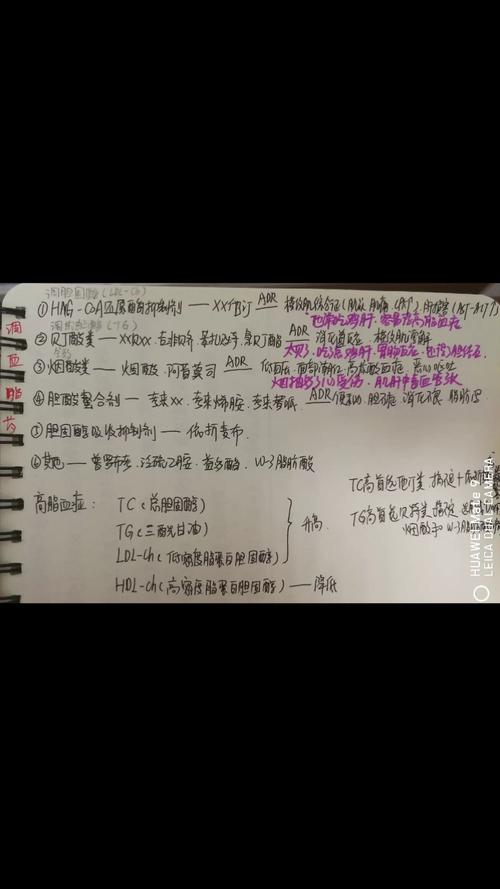 调胆固醇(LDL-Ch)
①HMG-CoA还原酶抑制剂——XX他汀 ADR 横纹肌综合征(肌炎 肌痛 CK↑) 肝损害(AST↑ALT↑)
也常吃鸡肝,容易得高脂血症
调甘油三酯(TG)
②贝丁酸类——XX贝XX. 吉非罗齐. 苯扎贝特. 氯贝丁酯 ADR 消化道反应 横纹肌溶解
太罗了.吃多点鸡肝.胃肠反应.也没得胆结石
③烟酸类——烟酸. 阿昔莫司 ADR 低血压. 面部潮红. 高尿酸血症. 恶心呕吐
烟抽多了心受伤,肌肝中毒血管张
④胆酸螯合剂——考来XX. 考来烯胺. 考来替泊. ADR 便秘. 胆石症 消化不良 脂肪泻
⑤胆固醇吸收抑制剂——依折麦布.
⑥其他——普罗布考. 泛硫乙胺. 益多酯. W-3脂肪酸
高脂血症: TC(总胆固醇)
TG(三酰甘油)
LDL-ch(低密度脂蛋白胆固醇)
升高.
HDL-ch(高密度脂蛋白胆固醇)——降低
TC高首选他汀类
TG高首选贝特类
烟酸和W-3脂肪酸
调血脂药
HUAWEI Mate 9
LEICA DUAL CAMERA